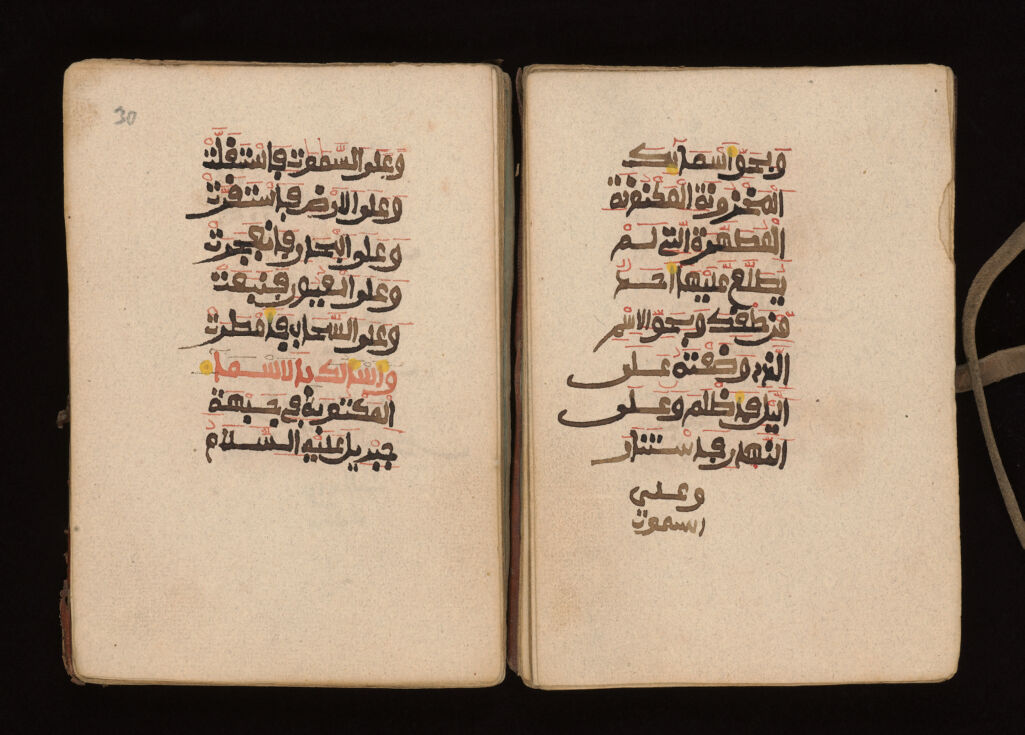 وبحق اسمايك
المخزونة المكنونة
المطهرة التي لم
يطلع عليها احد
من خلقك وبحق الاسم
الذي وضعته على
اليل فاظلم وعلى
النهار فاستنار
وعلى
السموت
30
وعلى السموت فاستقلت
وعلى الارض فاستقرت
وعلى البحار فانفجرت
وعلى العيون فنبعت
وعلى السحاب فامطرت
واسالك بالاسما
المكتوبة في جبهة
جبريل عليه السلام